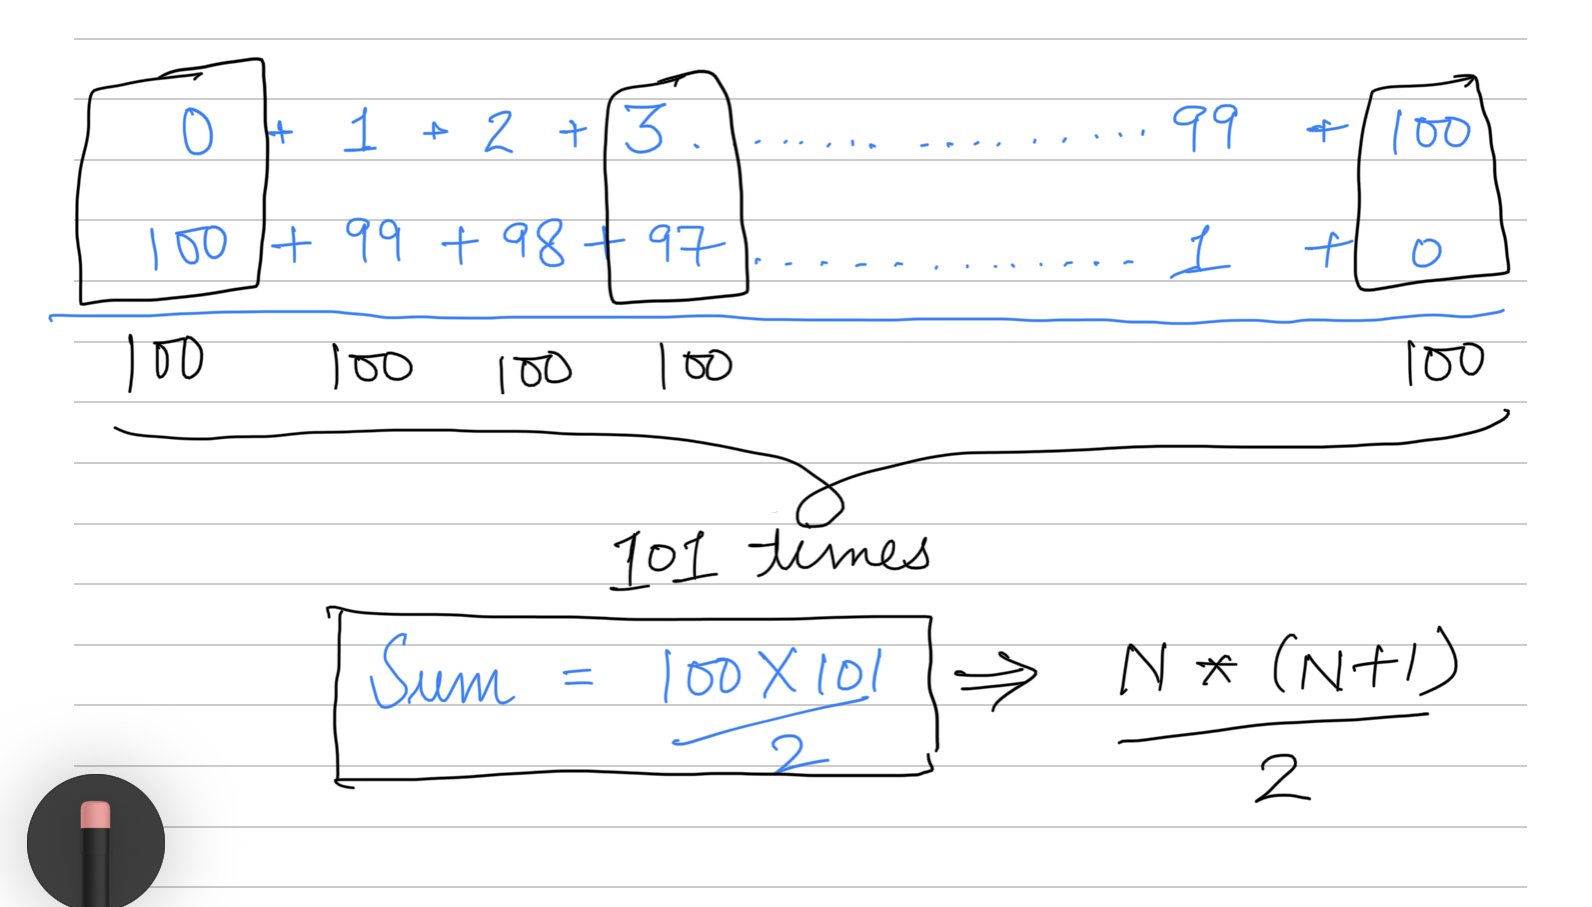 0 + 1 + 2 + 3 . ................... 99 + 100
100 + 99 + 98 + 97 ............... 1 + 0
100 100 100 100 100
101 times
Sum = 100 X 101 / 2 ⇒ N * (N+1) / 2